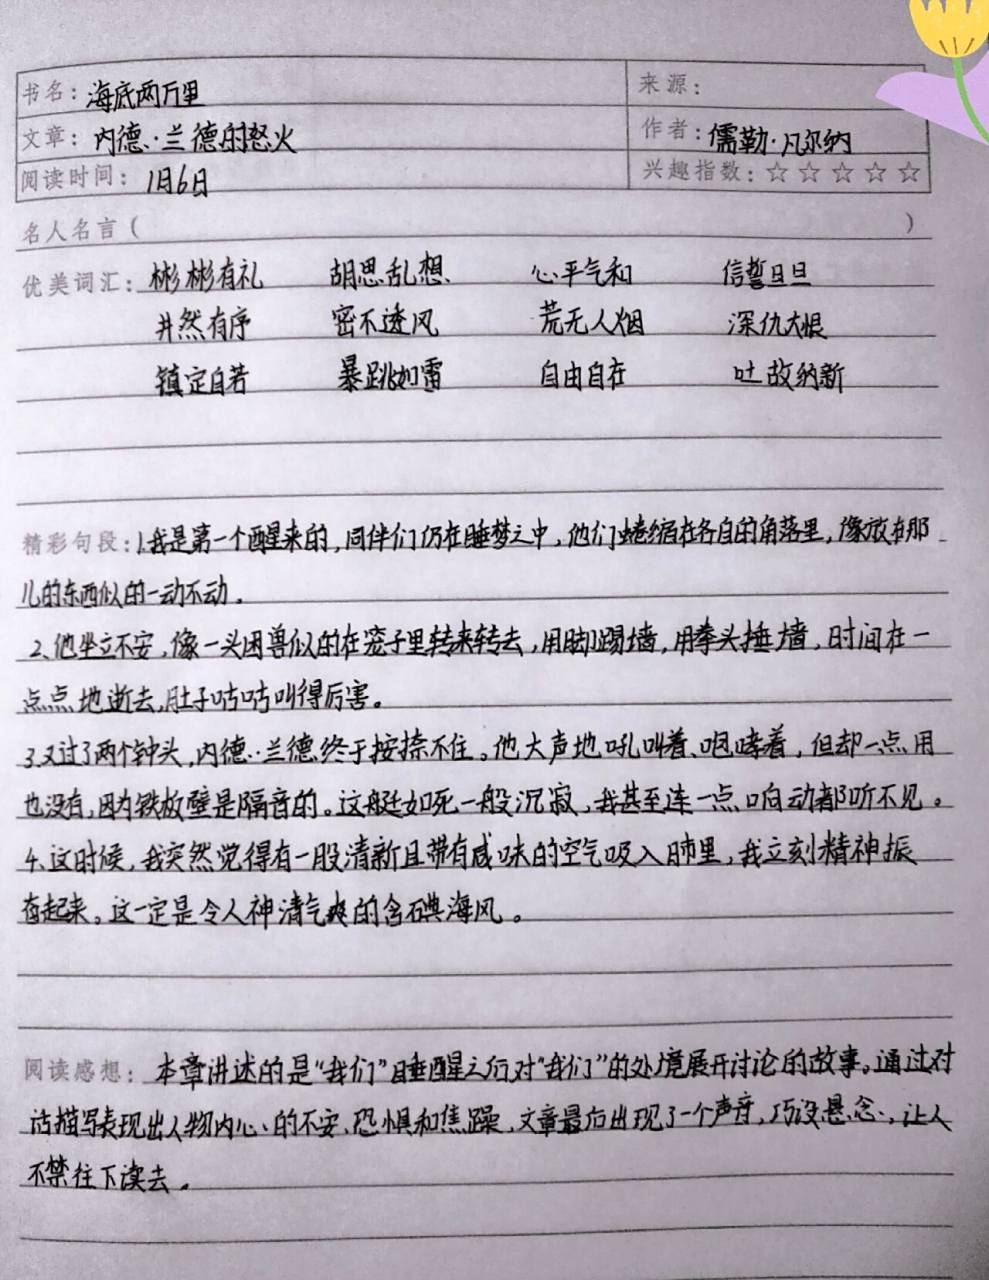 书名：海底两万里 来源：
文章：内德·兰德的怒火 作者：儒勒·凡尔纳
阅读时间：1月6日 兴趣指数：☆☆☆☆☆
名人名言（ ）
优美词汇：彬彬有礼 胡思乱想 心平气和 信誓旦旦
井然有序 密不透风 荒无人烟 深仇大恨
镇定自若 暴跳如雷 自由自在 吐故纳新
精彩句段：1.我是第一个醒来的，同伴们仍在睡梦之中，他们蜷缩在各自的角落里，像放在那
儿的东西似的一动不动。
2、他坐立不安，像一头困兽似的在笼子里转来转去，用脚踢墙，用拳头捶墙，时间在一
点点地逝去，肚子咕咕叫得厉害。
3.又过了两个钟头，内德·兰德终于按捺不住。他大声地吼叫着、咆哮着，但却一点用
也没有，因为铁板壁是隔音的。这艇如死一般沉寂，我甚至连一点响动都听不见。
4.这时候，我突然觉得有一股清新且带有咸味的空气吸入肺里，我立刻精神振
奋起来。这一定是令人神清气爽的含碘海风。
阅读感想：本章讲述的是“我们”睡醒之后对“我们”的处境展开讨论的故事。通过对
话描写表现出人物内心的不安、恐惧和焦躁，文章最后出现了一个声音，巧设悬念，让人
不禁往下读去。